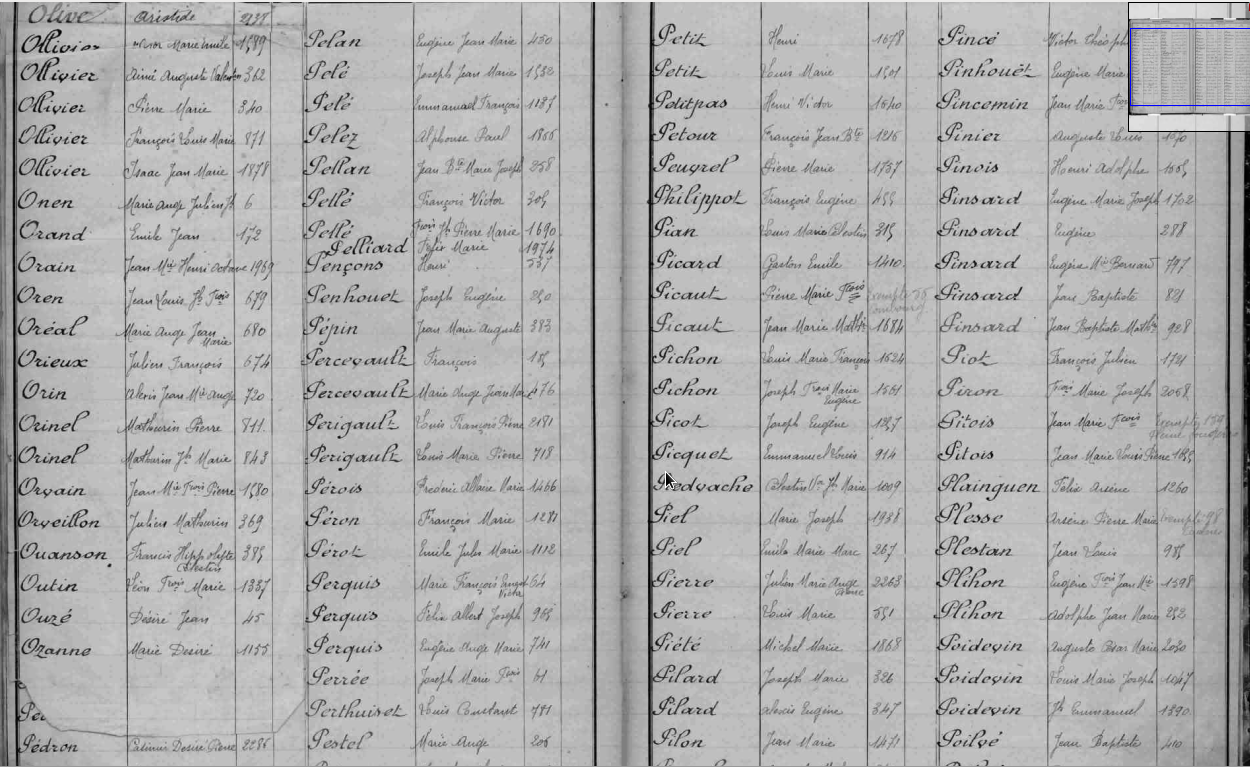 Olive Aristide
Ollivier Marie Emile 1589
Ollivier Aimé Auguste 362
Ollivier Pierre Marie 340
Ollivier François Louis Marie 871
Ollivier Isaac Jean Marie 1878
Onen Marie Ange Julien Jh 6
Orand Emile Jean 172
Orain Jean Mie Henri Octave 1969
Oren Jean Louis Jh Frois 679
Oréal Marie Ange Jean Marie 680
Orieux Julien François 674
Orin Alexis Jean Mie Ange 720
Orinel Mathurin Pierre 811
Orinel Mathurin Jh Marie 843
Orvain Jean Mie Frois Pierre 1580
Orveillon Julien Mathurin 369
Ouanson Francis Hippolyte Célestin 385
Outin Léon Frois Marie 1337
Ouzé Désiré Jean 45
Ozanne Marie Désiré 1155
Pédron Casimir Désiré Pierre 2286
Pelan Eugène Jean Marie
Pelé Joseph Jean Marie
Pelé Emmanuel François 1187
Pelez Alphonse Paul
Pellan Jean Bte Marie Joseph 258
Pellé François Victor 305
Pellé Frois Jh Pierre Marie 1690
Pelliard Félix Marie 1974
Pençons Henri 537
Penhouet Joseph Eugène 250
Pépin Jean Marie Auguste 383
Percevault François 185
Percevault Marie Ange Jean 476
Perigault Louis François Pierre 2181
Perigault Louis Marie Pierre 718
Pérois Frederic Marie 1466
Péron François Marie 1281
Pérot Emile Jules Marie 1112
Perquis Marie François 64
Perquis Félix Albert Joseph 965
Perquis Eugène Ange Marie 741
Perrée Joseph Marie Frois 61
Perthuiset Louis Constant 781
Pestel Marie Ange 206
Petit Henri 1078
Petit Louis Marie 1501
Petitpas Henri Victor 1640
Petour François Jean Bte 1216
Peuvrel Pierre Marie 1737
Philippot François Eugène 455
Pian Louis Marie Célestin 315
Picard Gaston Emile 1410
Picaut Pierre Marie Frois
Picaut Jean Marie Mathn 1684
Pichon Louis Marie François 1624
Pichon Joseph Frois Marie Eugène 1561
Picot Joseph Eugène 1257
Picquet Emmanuel Louis 914
Piedvache Célestin Jh Marie 1009
Piel Marie Joseph 1938
Piel Emile Marie Marc 267
Pierre Julien Marie Ange 2263
Pierre Louis Marie 551
Piété Michel Marie 1868
Pilard Joseph Marie 326
Pilard Alexis Eugène 347
Pilon Jean Marie 1471
Pincé Victor
Pinhouët Eugène Marie
Pincemin Jean Marie
Pinier Auguste Louis 1070
Pinois Henri Adolphe
Pinsard Eugène Marie Joseph 1702
Pinsard Eugène 288
Pinsard Eugène Mie Bernard 797
Pinsard Jean Baptiste 821
Pinsard Jean Baptiste Mathn 928
Piot François Julien 1721
Piron Frois Marie Joseph 2058
Pitois Jean Marie Frois
Pitois Jean Marie Louis Pierre
Plainguen Félix Arsène 1260
Plesse Arsène Pierre Marie
Plestan Jean Louis 985
Plihon Eugène Frois Jean Mie 1398
Plihon Adolphe Jean Marie 252
Poidevin Auguste Marie 2030
Poidevin Louis Marie Joseph 1047
Poidevin Jh Emmanuel 1390
Poilvé Jean Baptiste 410